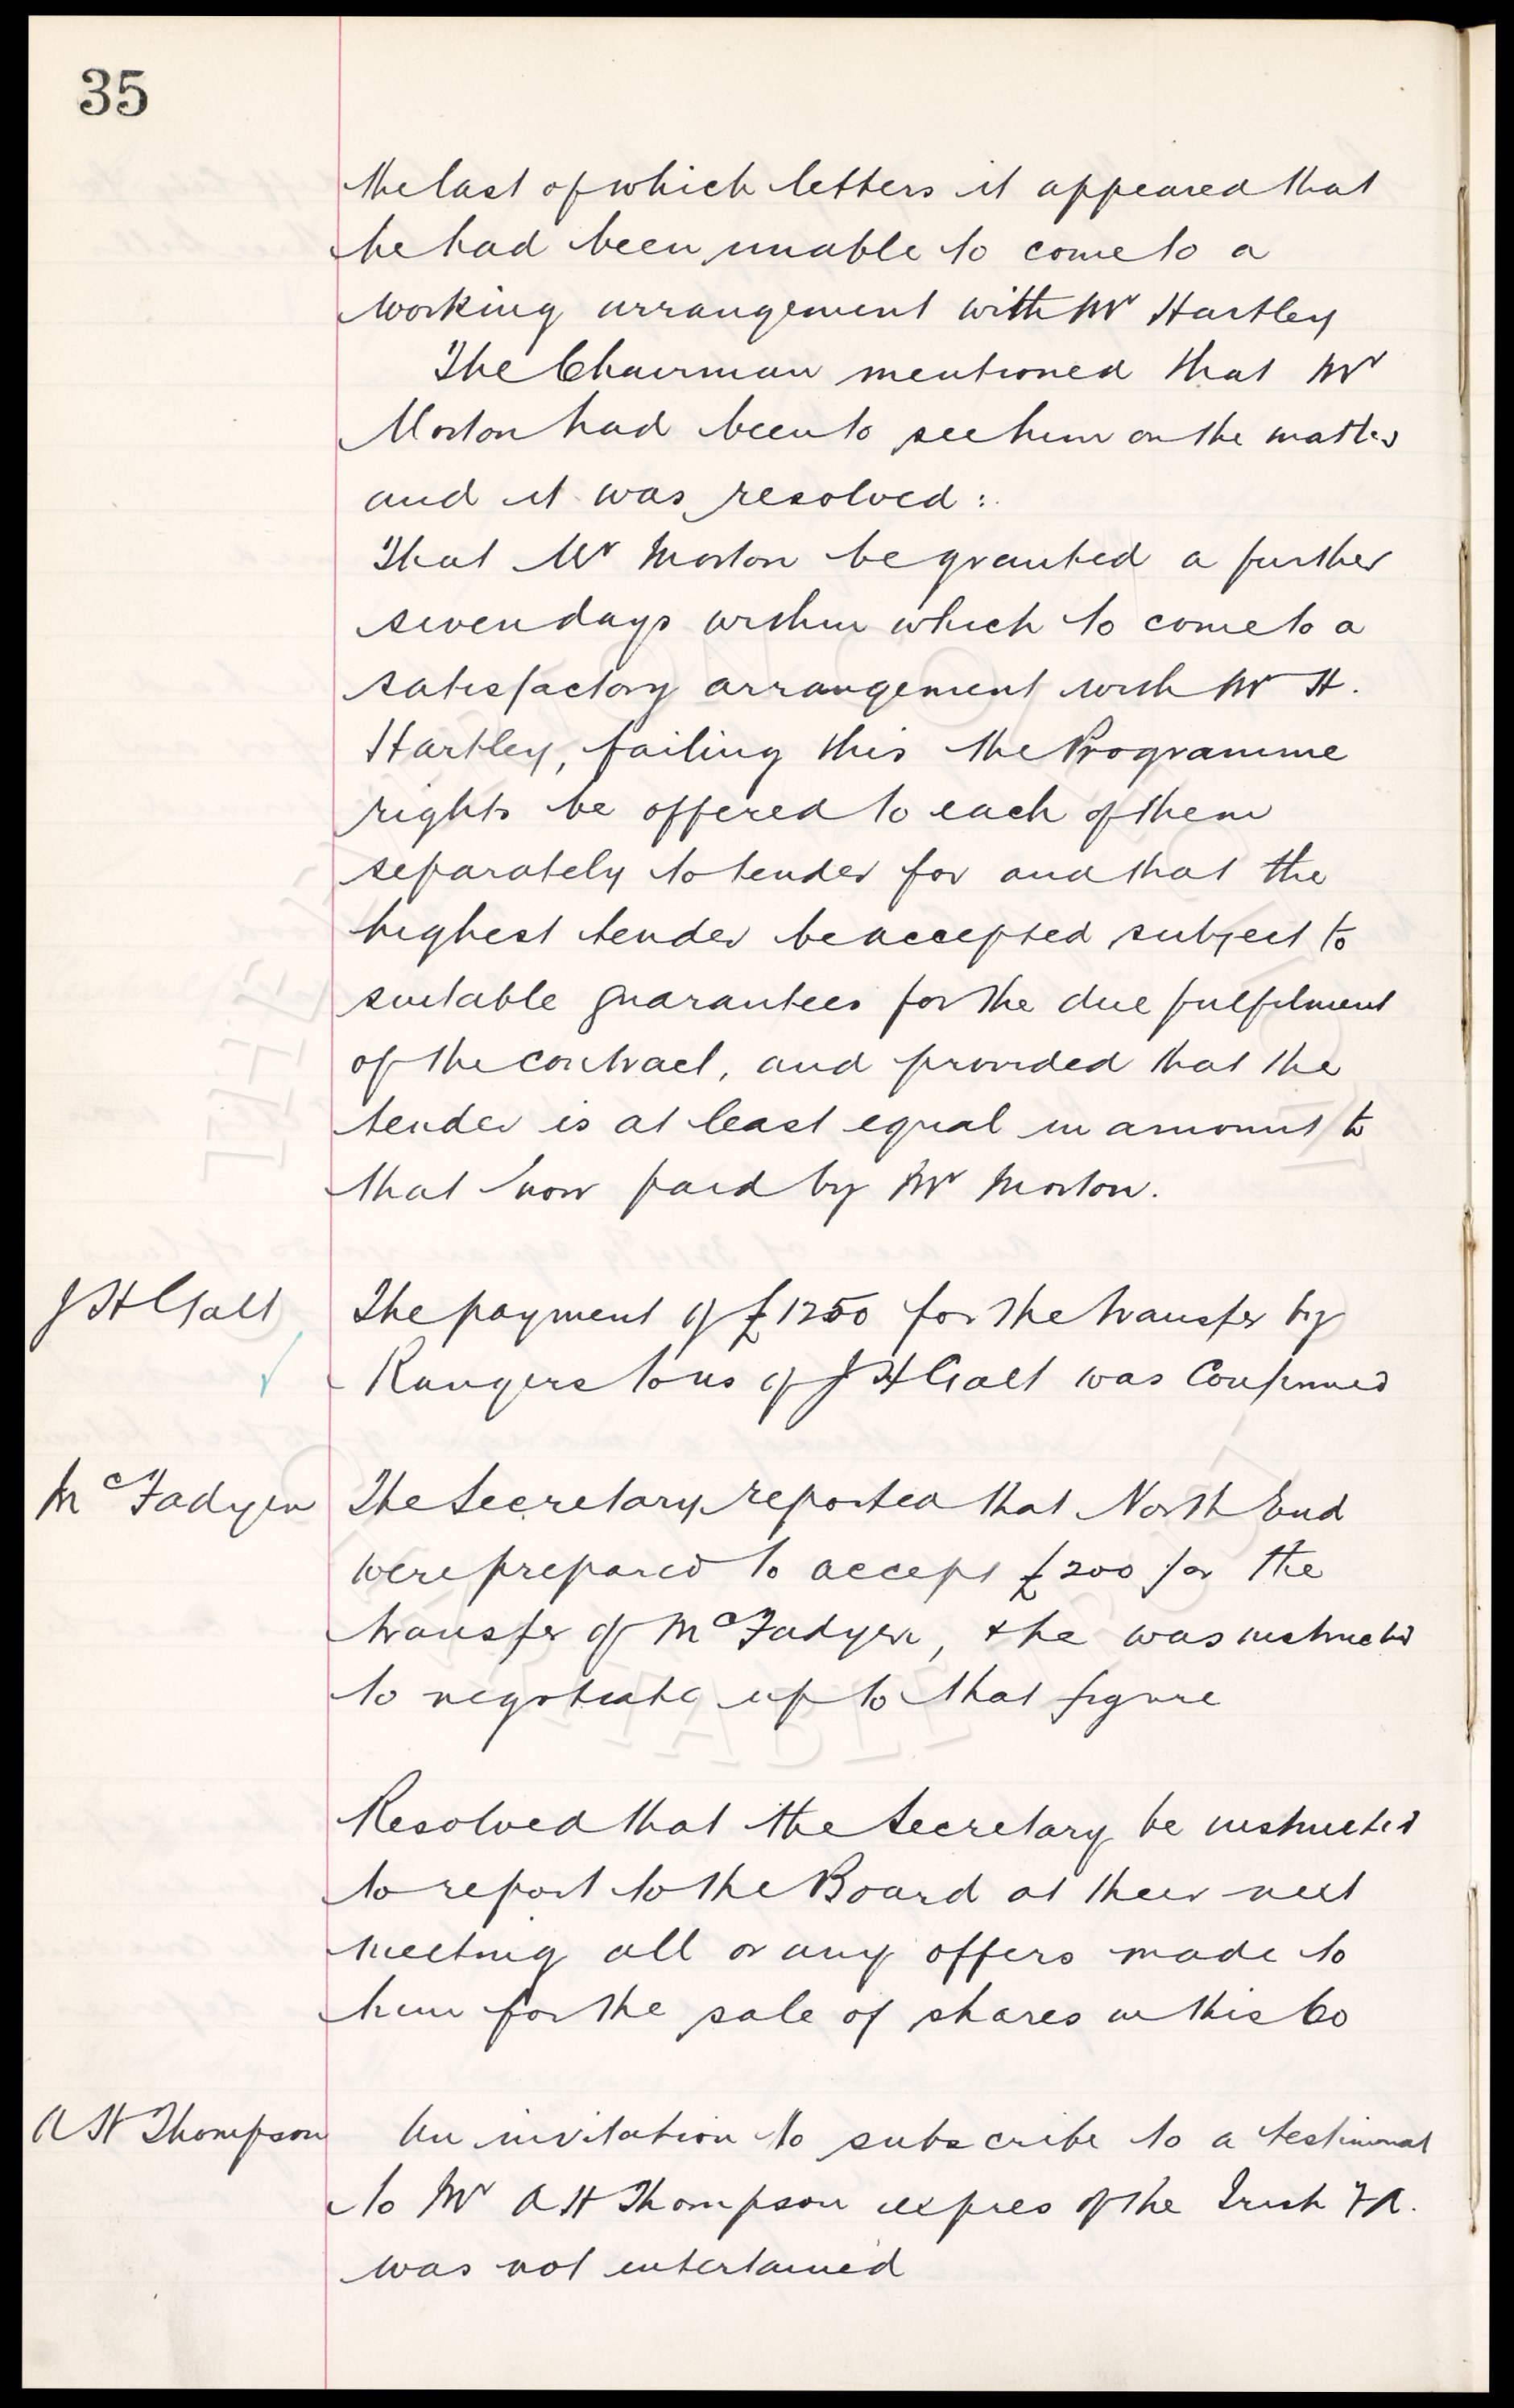 35
the last of which letters it appeared that
he had been unable to come to a
working arrangement with Mr Hartley
The Chairman mentioned that Mr
Morton had been to see him on the matter
and it was resolved :
That Mr Morton be granted a further
seven days within which to come to a
satisfactory arrangement with Mr H.
Hartley, failing this the Programme
rights be offered to each of them
separately to tender for and that the
highest tender be accepted subject to
suitable guarantees for the due fulfilment
of the contract, and provided that the
tender is at least equal in amount to
that now paid by Mr Morton.
J H Galt
The payment of £1250 for the transfer by
Rangers to us of J H Galt was Confirmed
McFadyen
The Secretary reported that North End
were prepared to accept £200 for the
transfer of McFadyen, & he was instructed
to negotiate up to that figure
Resolved that the Secretary be instructed
to report to the Board at their next
meeting all or any offers made to
him for the sale of shares in this Co
A H Thompson
An invitation to subscribe to a testimonal
to Mr A H Thompson expres of the Irish F A.
was not entertained